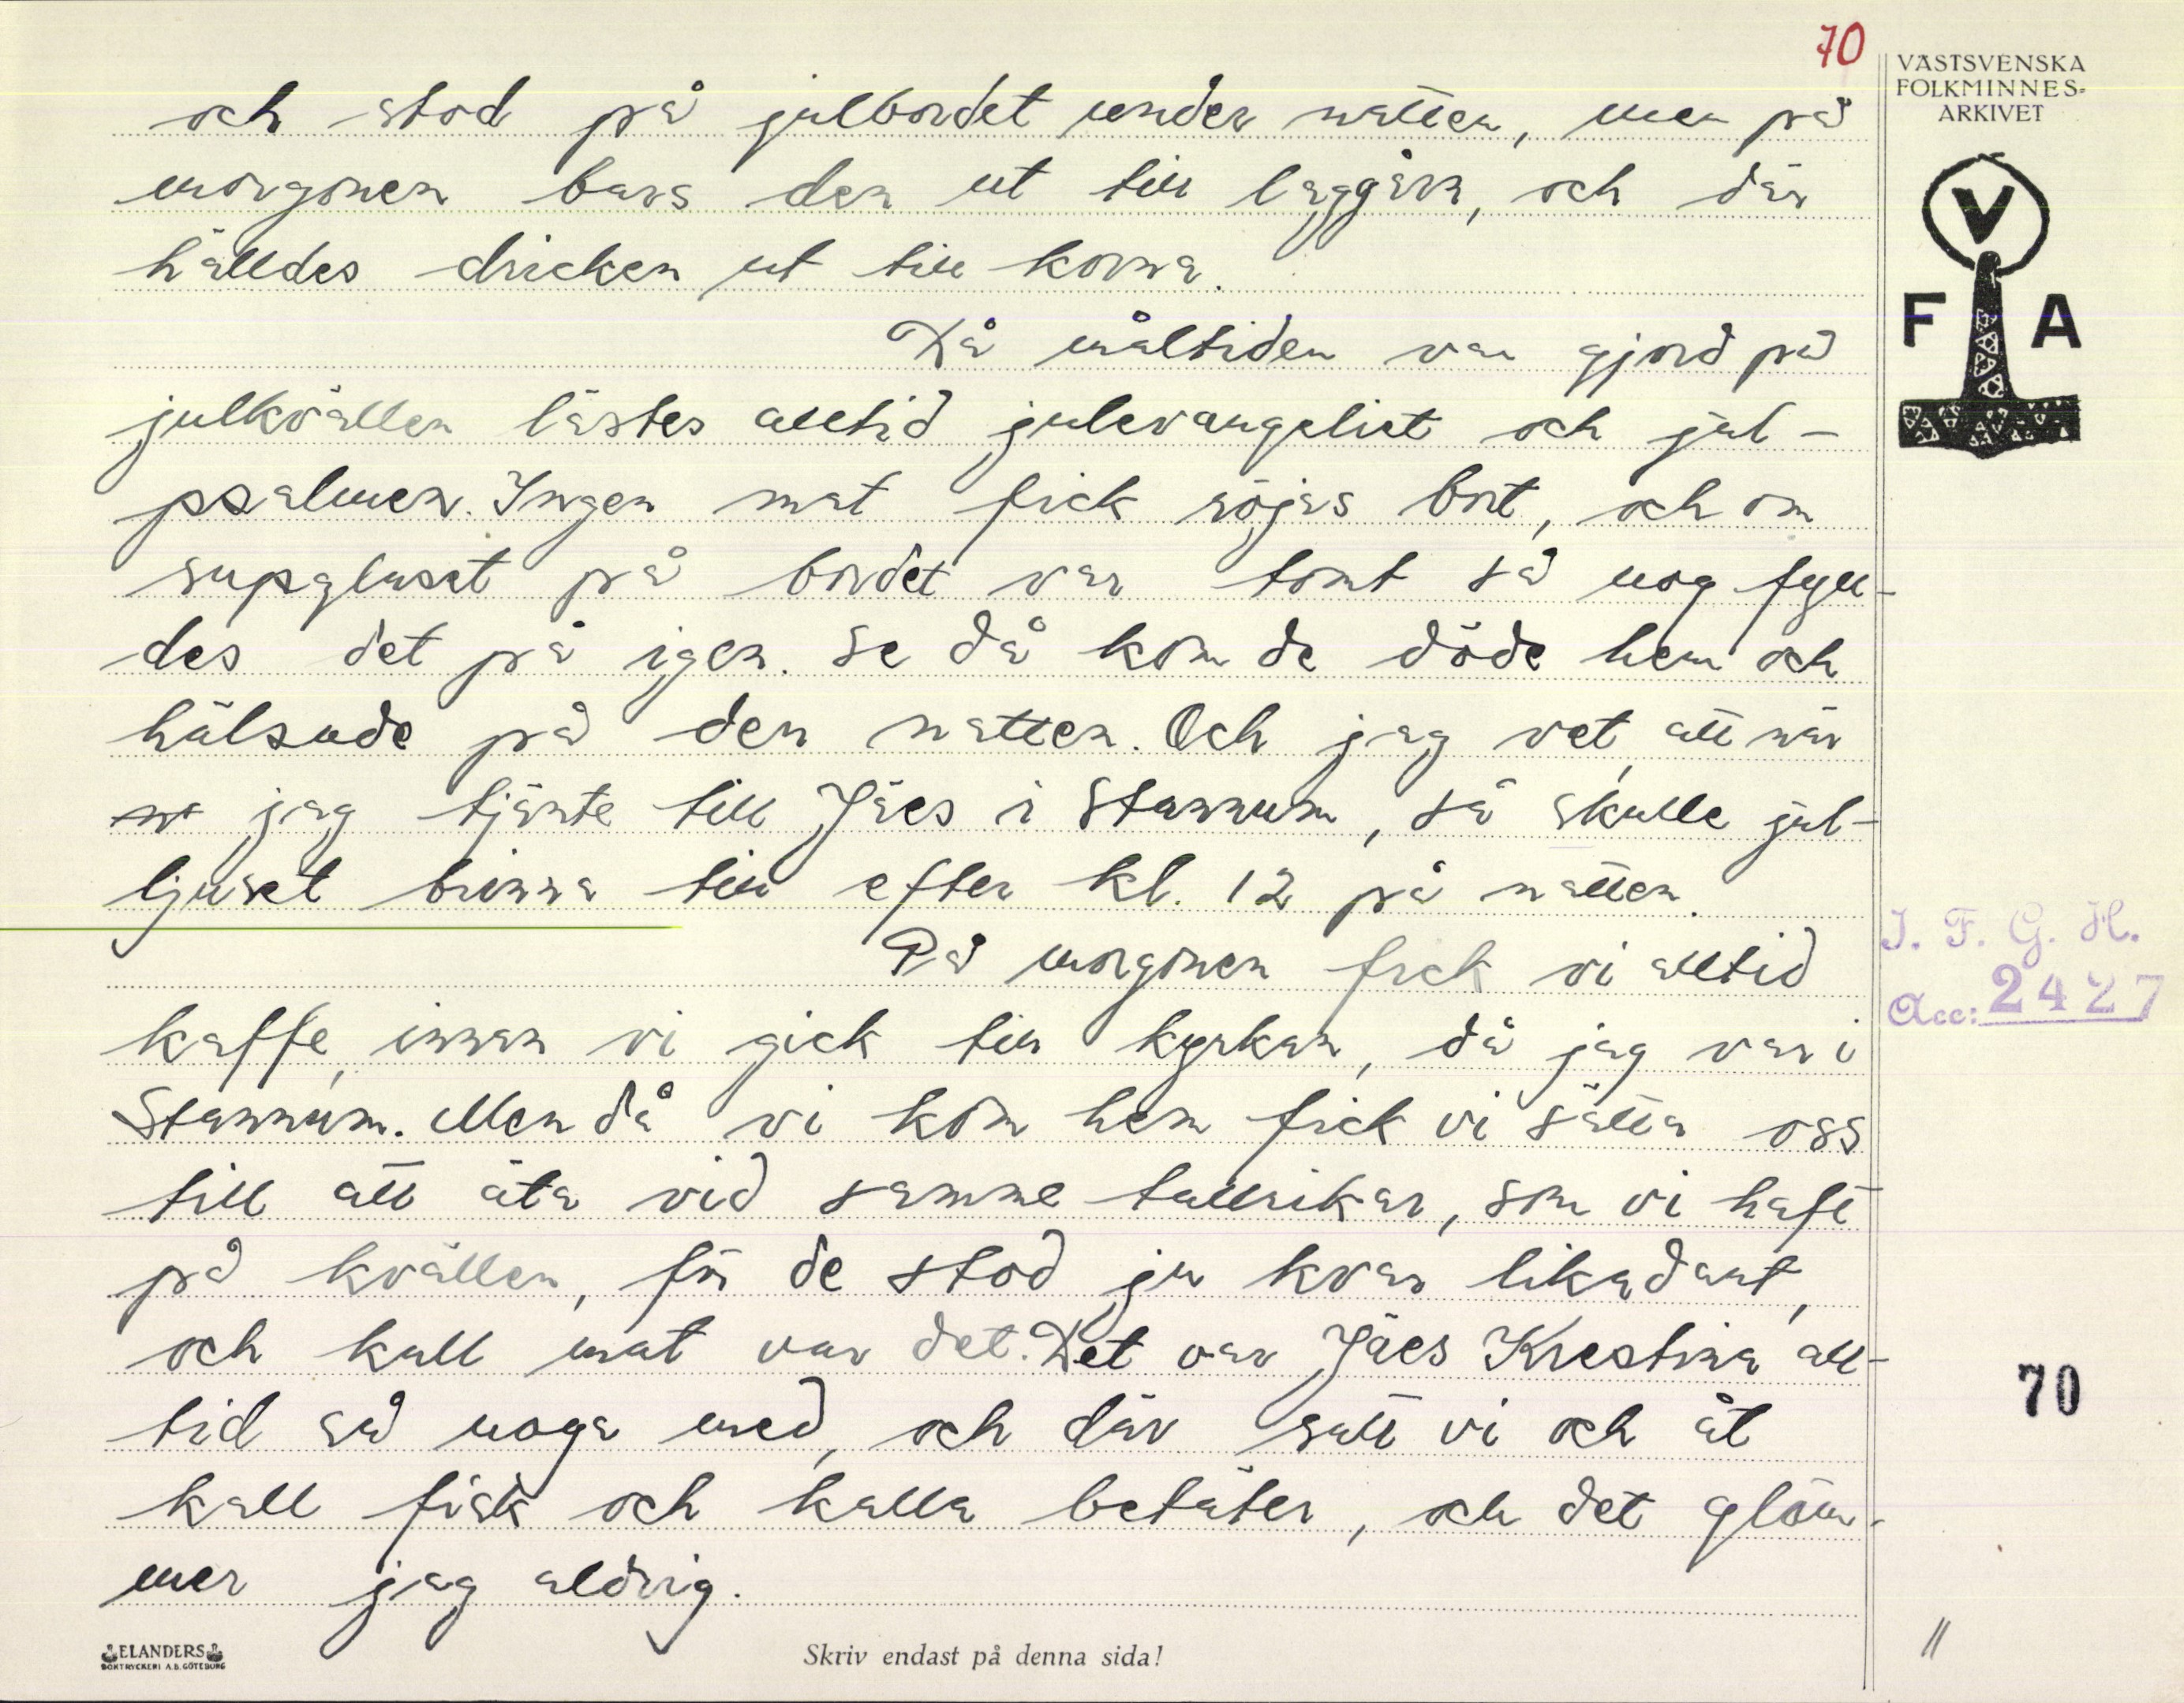 70
VÄSTSVENSKA
FOLKMINNES-
ARKIVET
V
F A
och stod på julbordet under natten, men på
morgonen bars den ut till laggårn, och där
hälldes dricken ut till korna.
Då måltiden var gjord på
julkvällen lästes alltid julevangeliet och jul-
psalmen. Ingen mat fick röjas bort, och om
supglaset på bordet var tomt så nog fyll-
des det på igen. Se då kom de döde hem och
hälsade på den natten. Och jag vet, att när
jag tjänte till Jäes i Stannum, så skulle jul-
ljuset brinna till efter kl. 12 på natten.
På morgonen fick vi alltid
kaffe, innan vi gick till kyrkan, då jag var i
Stannum. Men då vi kom hem fick vi sätta oss
till att äta vid samme tallrikar, som vi haft
på kvällen, för de stod ju kvar likadant,
och kall mat var det. Det var Jäes Krestina all-
tid så noga med, och där satt vi och åt
kall fisk och kalla betäter, och det glöm-
mer jag aldrig.
I. F. G. H.
Acc: 2427
70
11
ELANDERS
BOKTRYCKERI A.B. GÖTEBORG
Skriv endast på denna sida!